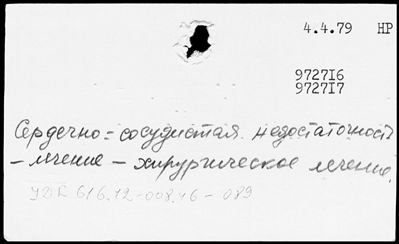 4.4.79 HP
9727I6
9727I7
Сердечно-сосудистая недостаточность
– лечение – хирургическое лечение.
УДК 616.12-008.46-089